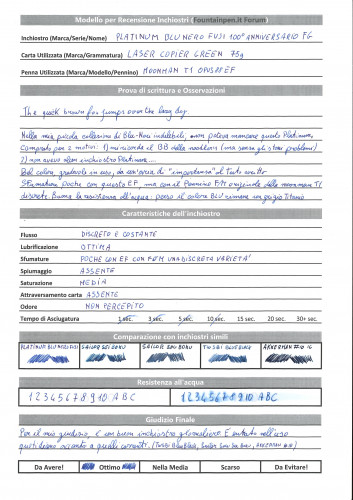 Modello per Recensione Inchiostri (Fountainpen.it Forum)
Inchiostro (Marca/Serie/Nome) PLATINUM BLU NERO FUJI 100° ANNIVERSARIO FG
Carta Utilizzata (Marca/Grammatura) LASER COPIER GREEN 75g
Penna Utilizzata (Marca/Modello/Pennino) MOONMAN T1 OPUS88 EF
Prova di scrittura e Osservazioni
The quick brown fox jumps over the lazy dog
Nella mia piccola collezione di Blu-Neri indelebili, non poteva mancare questo Platinum,
Comprato per 2 motivi:
2) non avevo alcun inchiostro Platinum...
Bel colore, gradevole in uso, da "importanza" al testo scritto
Sfumature poche con questo EF, ma con il Pennino originale della moonman T1
discrete. Buona la resistenza all'acqua: perso il colore BLU rimane un grigio
Caratteristiche dell'inchiostro
Flusso DISCRETO E COSTANTE
Lubrificazione OTTIMA
Sfumature POCHE CON EF CON F&M UNA DISCRETA VARIETA'
Spiumaggio ASSENTE
Saturazione MEDIA
Attraversamento carta ASSENTE
Odore NON PERCEPITO
Tempo di Asciugatura 1 sec 3 sec 5 sec 10 sec 15 sec 20 sec 30+ sec
Comparazione con inchiostri simili
PLATINUM BLU NERO FUJI SAILOR SEI BOKU SAILOR SOU BOKU TWSBI BLUE BLACK AKKERMAN #10
Resistenza all'acqua
1 2 3 4 5 6 7 8 9 10 ABC 1 2 3 4 5 6 7 8 9 10 ABC
Giudizio Finale
Per il mio giudizio, è un buon inchiostro giornaliero. È entrato nell'uso
quotidiano accanto a quelli
Da Avere! Ottimo Nella Media Scarso Da Evitare!